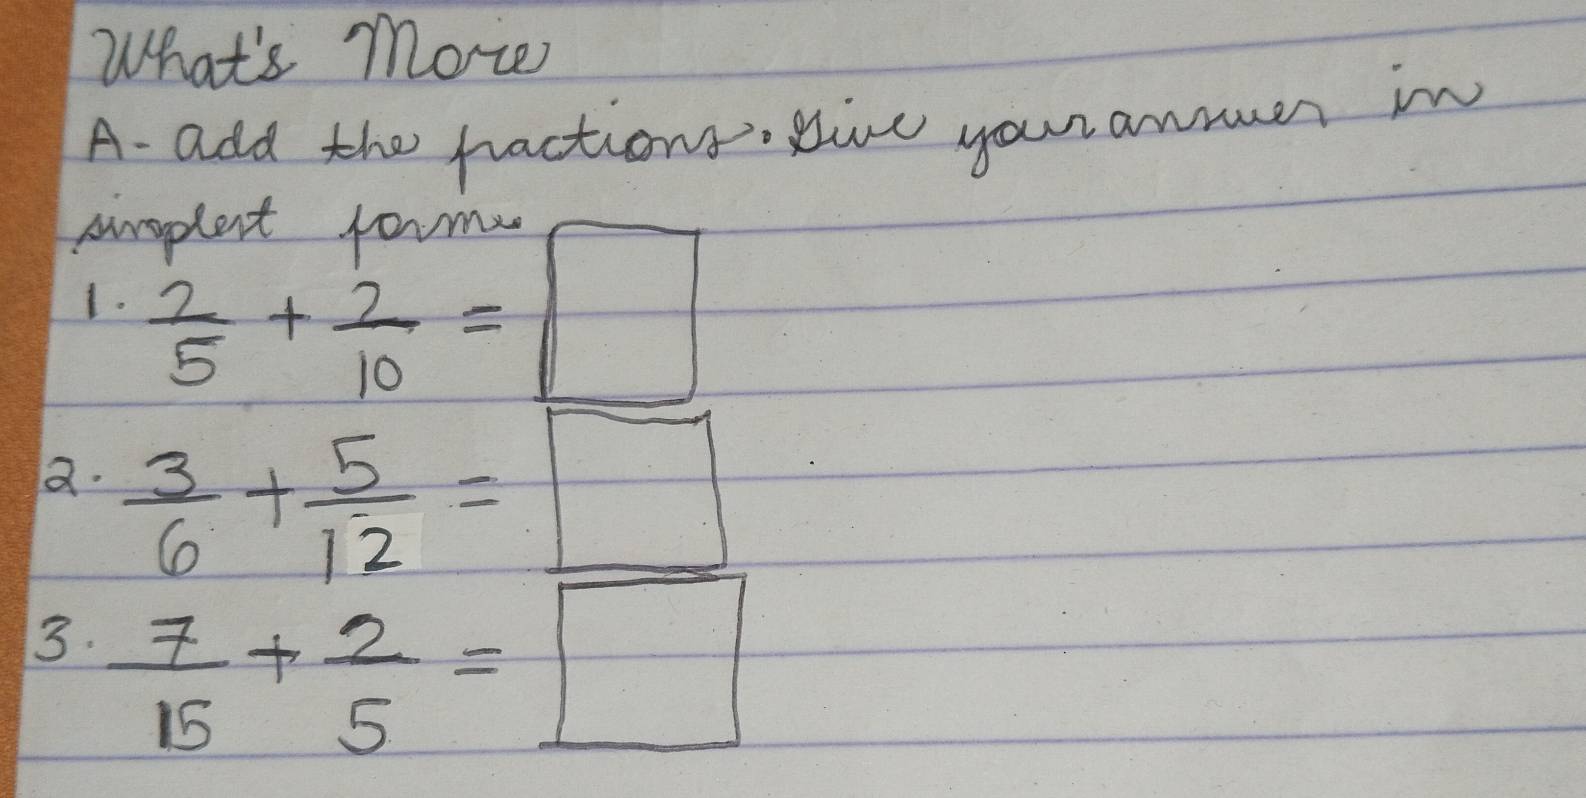 What's More
A- add the fractions. Give your answer in
simplest form.
1. 2/5 + 2/10 =
2. 3/6 + 5/12 =
3. 7/15 + 2/5 =